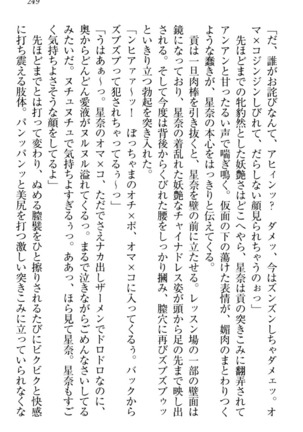 249
「だ、誰がお詫びなんて、アヒィンッ? ダメッ、今はズンズンしちゃダメエッ。オ
マ×コジンジンしびれて、だらしない顔見られちゃうのぉっ」
先ほどまでの牝豹然とした妖艶さはどこへやら、星奈は貢の突きこみに翻弄されて
アンアンと甘ったるい声で喘ぎ鳴く。仮面の下の蕩けた表情が、媚肉のまとわりつく
ような蠢きが、星奈の本心をはっきりと伝えてくる。
貢は一旦肉棒を引き抜くと、星奈を壁の前に立たせる。レッスン場の一部の壁面は
鏡になっており、星奈の着乱れた妖艶なチャイナドレス姿が頭から足の先まで映し出
される。そして今度は背後からくびれた腰をしっかり掴み、膣穴に再びズブズブゥッ
といきり立つ勃起を突き入れた。
「ンヒアァァ~ッ! ぼっちゃまのオチ×ポ、オマ×コに入ってくるぅっ。バックから
ズブズブッて犯されちゃってるぅ~っ」
「うはあぁ~っ。星奈のオマ×コ、ただでさえナカ出しザーメンでドロドロなのに、
奥からどんどん愛液がヌルヌル溢れてくるっ。まるで泣きながらごめんなさいしてる
みたいだ。ヌチュヌチュで気持ちよすぎるぅっ。ああっ、ほら見て、星奈。星奈もすご
く気持ちよさそうな顔をしてるよ」
先ほどまでとは打って変わり、ぬめる膣襞をひと擦りされるたびにビクビクと快感
に打ち震える肢体。パンッパンッと美尻を打つ激しい突きこみに立っていられなくな